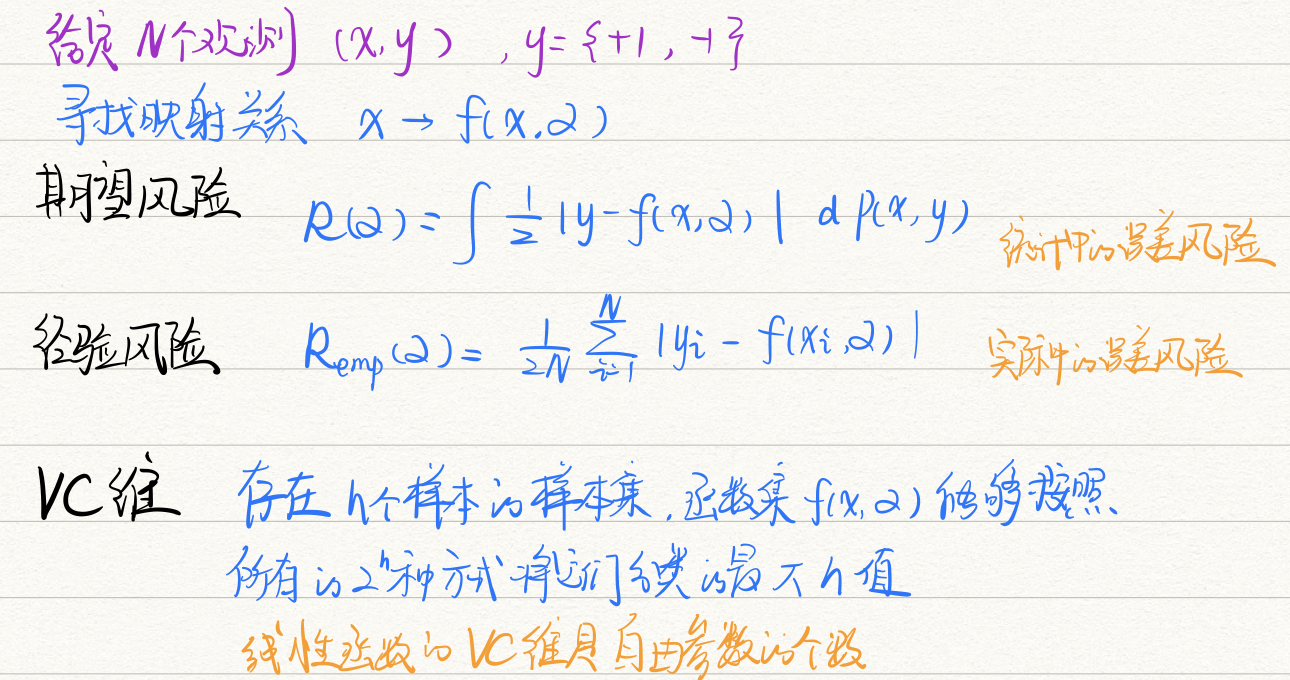 给定 N个观测 (x,y) , y={+1, -1}
寻找映射关系 x → f(x,α)
期望风险 R(α) = ∫ 1/2 |y-f(x,α)| d P(x,y) 统计中的误差风险
经验风险 R_emp(α) = 1/(2N) ∑_{i=1}^{N} |y_i - f(x_i,α)| 实际中的误差风险
VC维 存在h个样本的样本集,函数集f(x,α)能够按照
所有的2^h种方式将它们分类的最大h值
线性函数的VC维是自由参数的个数